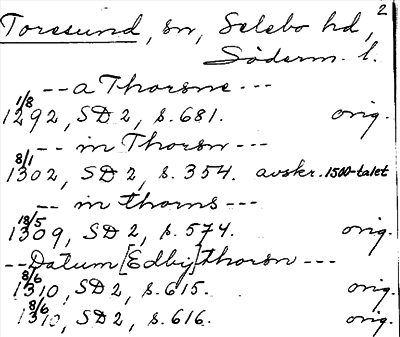 2
Toresund, sn, Selebo hd,
Söderm. l.
-- a Thorsne ---
1/8
1292, SD 2, s. 681. orig.
-- in Thorsn ---
8/1
1302, SD 2, s. 354. avskr. 1500-talet
-- in thorns ---
18/5
1309, SD 2, s. 574. orig.
-- Datum [Edby] thorsn ---
8/6
1310, SD 2, s. 615. orig.
8/6
1310, SD 2, s. 616. orig.